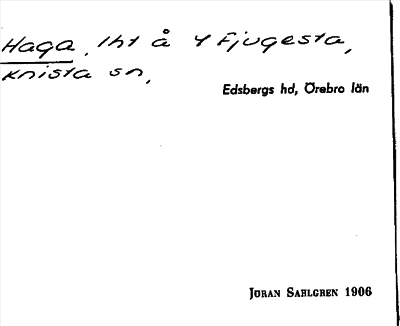 Haga, lht å Y Fjugesta,
Knista sn,
Edsbergs hd, Örebro län
Jöran Sahlgren 1906